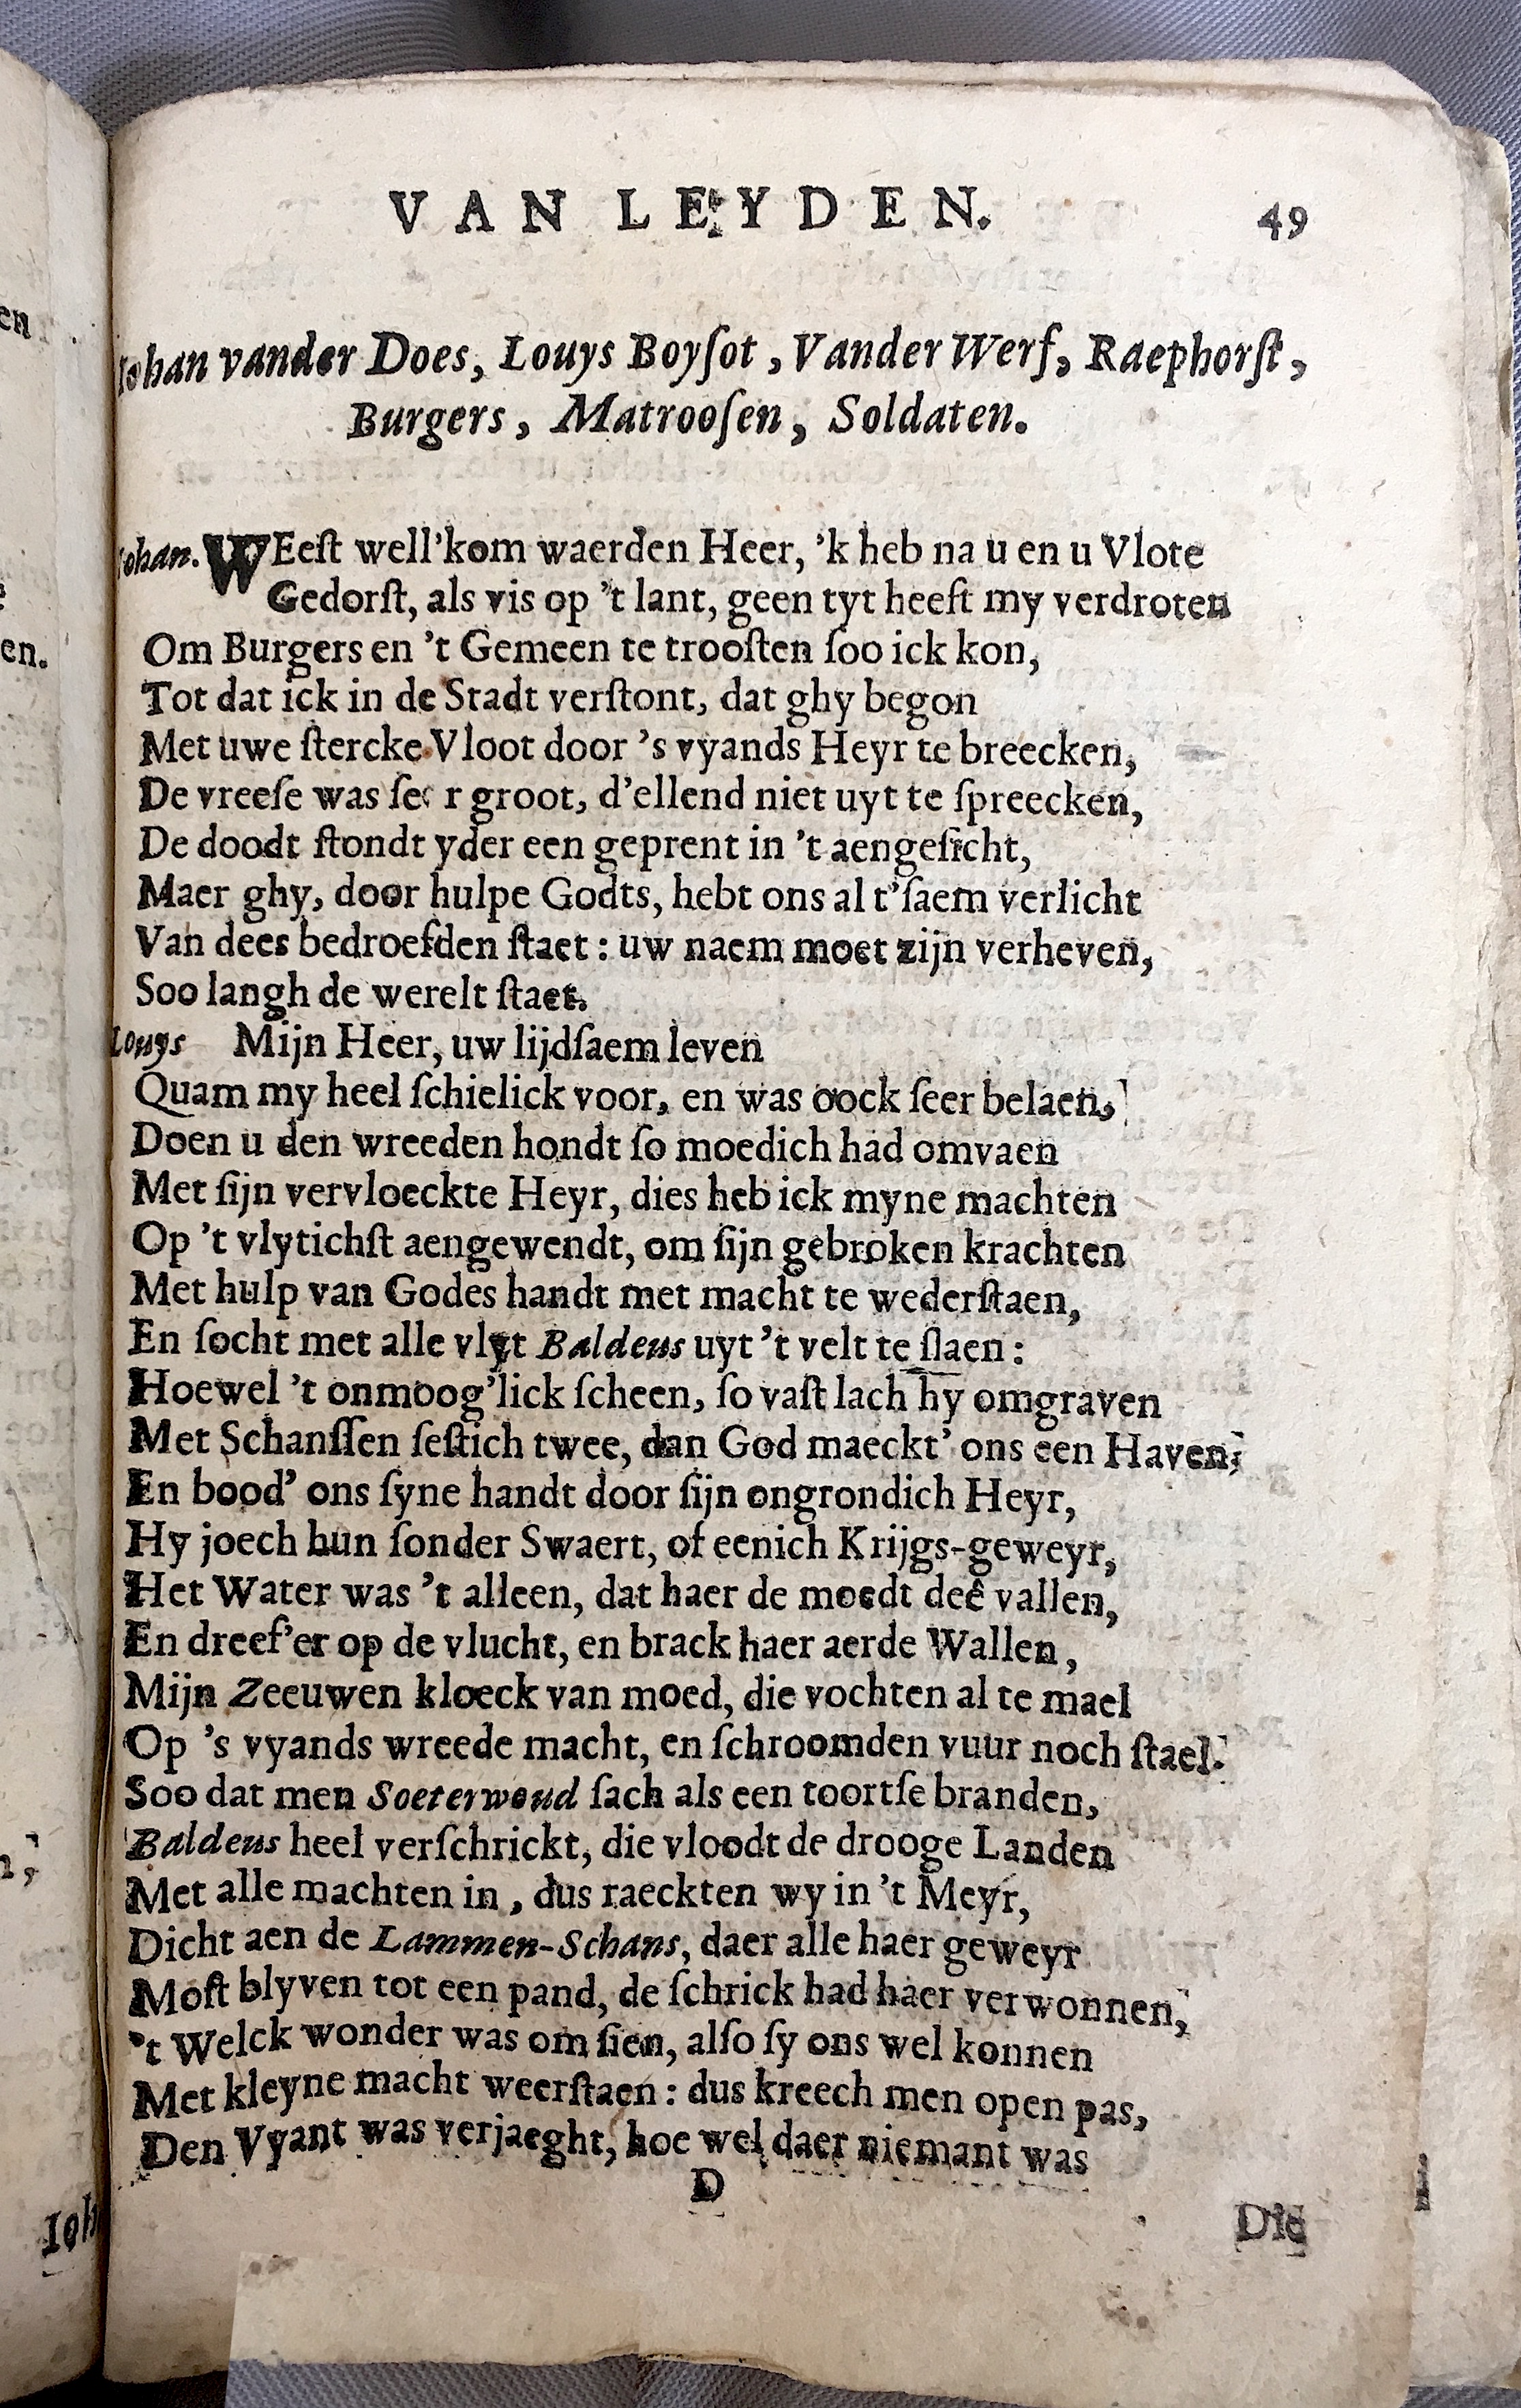 VAN LEYDEN. 49
Iohan vander Does, Louys Boyſot, Vander Werf, Raephorſt,
Burgers, Matrooſen, Soldaten.
Iohan. WEeſt well'kom waerden Heer, 'k heb na u en u Vlote
Gedorſt, als vis op 't lant, geen tyt heeft my verdroten
Om Burgers en 't Gemeen te trooſten ſoo ick kon,
Tot dat ick in de Stadt verſtont, dat ghy begon
Met uwe ſtercke Vloot door 's vyands Heyr te breecken,
De vreeſe was ſeer groot, d'ellend niet uyt te ſpreecken,
De doodt ſtondt yder een geprent in 't aengeſicht,
Maer ghy, door hulpe Godts, hebt ons al t'ſaem verlicht
Van dees bedroefden ſtaet: uw naem moet zijn verheven,
Soo langh de werelt ſtaet.
Louys Mijn Heer, uw lijdſaem leven
Quam my heel ſchielick voor, en was oock ſeer belaen,
Doen u den wreeden hondt ſo moedich had omvaen
Met ſijn vervloeckte Heyr, dies heb ick myne machten
Op 't vlytichſt aengewendt, om ſijn gebroken krachten
Met hulp van Godes handt met macht te wederſtaen,
En ſocht met alle vlyt Baldeus uyt 't velt te ſlaen:
Hoewel 't onmoog'lick ſcheen, ſo vaſt lach hy omgraven
Met Schanſſen ſeſtich twee, dan God maeckt' ons een Haven;
En bood' ons ſyne handt door ſijn ongrondich Heyr,
Hy joech hun ſonder Swaert, of eenich Krijgs-geweyr,
Het Water was 't alleen, dat haer de moedt deê vallen,
En dreef'er op de vlucht, en brack haer aerde Wallen,
Mijn Zeeuwen kloeck van moed, die vochten al te mael
Op 's vyands wreede macht, en ſchroomden vuur noch ſtael.
Soo dat men Soeterwoud ſach als een toortſe branden,
Baldeus heel verſchrickt, die vloodt de drooge Landen
Met alle machten in, dus raeckten wy in 't Meyr,
Dicht aen de Lammen-Schans, daer alle haer geweyr
Moſt blyven tot een pand, de ſchrick had haer verwonnen,
't Welck wonder was om ſien, alſo ſy ons wel konnen
Met kleyne macht weerſtaen: dus kreech men open pas,
Den Vyant was verjaeght, hoe wel daer niemant was
D
Die